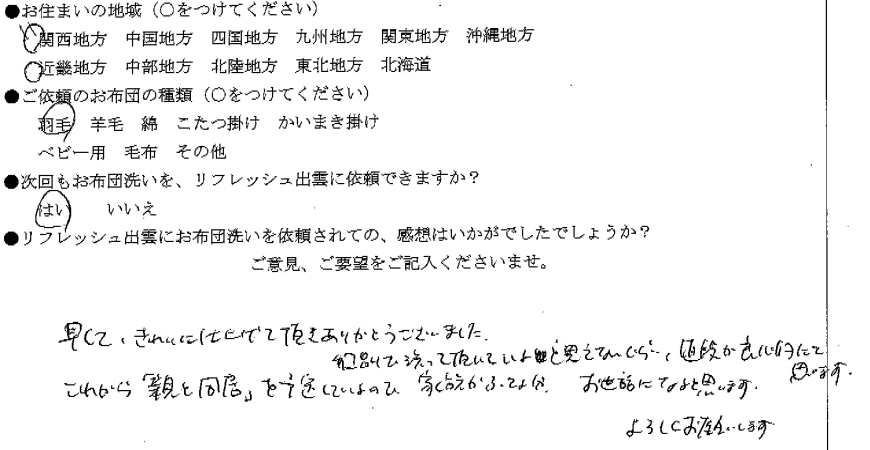 ●お住まいの地域（○をつけてください）
関西地方　中国地方　四国地方　九州地方　関東地方　沖縄地方
近畿地方　中部地方　北陸地方　東北地方　北海道
●ご依頼のお布団の種類（○をつけてください）
羽毛　羊毛　綿　こたつ掛け　かいまき掛け
ベビー用　毛布　その他
●次回もお布団洗いを、リフレッシュ出雲に依頼できますか？
はい　いいえ
●リフレッシュ出雲にお布団洗いを依頼されての、感想はいかがでしたでしょうか？
ご意見、ご要望をご記入くださいませ。
早くて、きれいに仕上げて頂きありがとうございました。
個別で洗って頂いて、値段が良心的だと思います。
これから「親と同居」を予定しているので、家族がふえる分、お世話になると思います。
よろしくお願いします